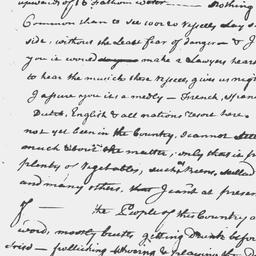 upwards of 16 fathom water — Nothing
Common than to see 100 or 2 Vessells lay s
side, without the Least fear of danger — & J
you is word make a Lawyers heart
to hear the musick those Vessells, gives us nigh
J assure you is a medly — French, Span
Dutch, English & all nations resort here.
not yet been in the Country, J cannot
much about the matter, only that is fr
plenty of Vegetables, such as Peas, Sallad
and many others, that J can't at present
of — the People of this Country a
word, mostly brutes, getting Drunk befor
frolicking Whoring & playing the D